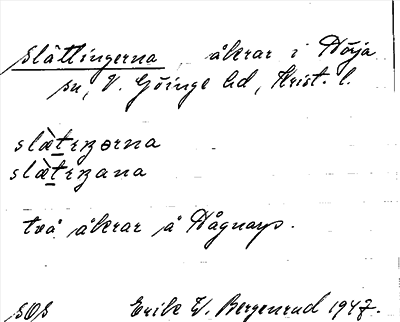 Slättingerna, åkrar i Röja
sn, V. Göinge hd, Krist. l.
slæ̀tɩŋɵrna
slæ̀tɩŋana
två åkrar å Hågnarps.
SOS Erik W. Bergenrud 1947.